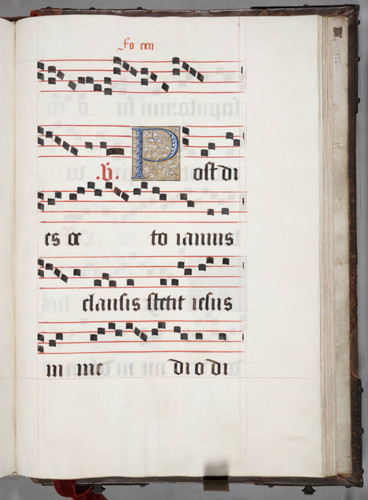 Fo cxij
.v. Post di
es oc to ianuis
clausis stetit iesus
in me di o di